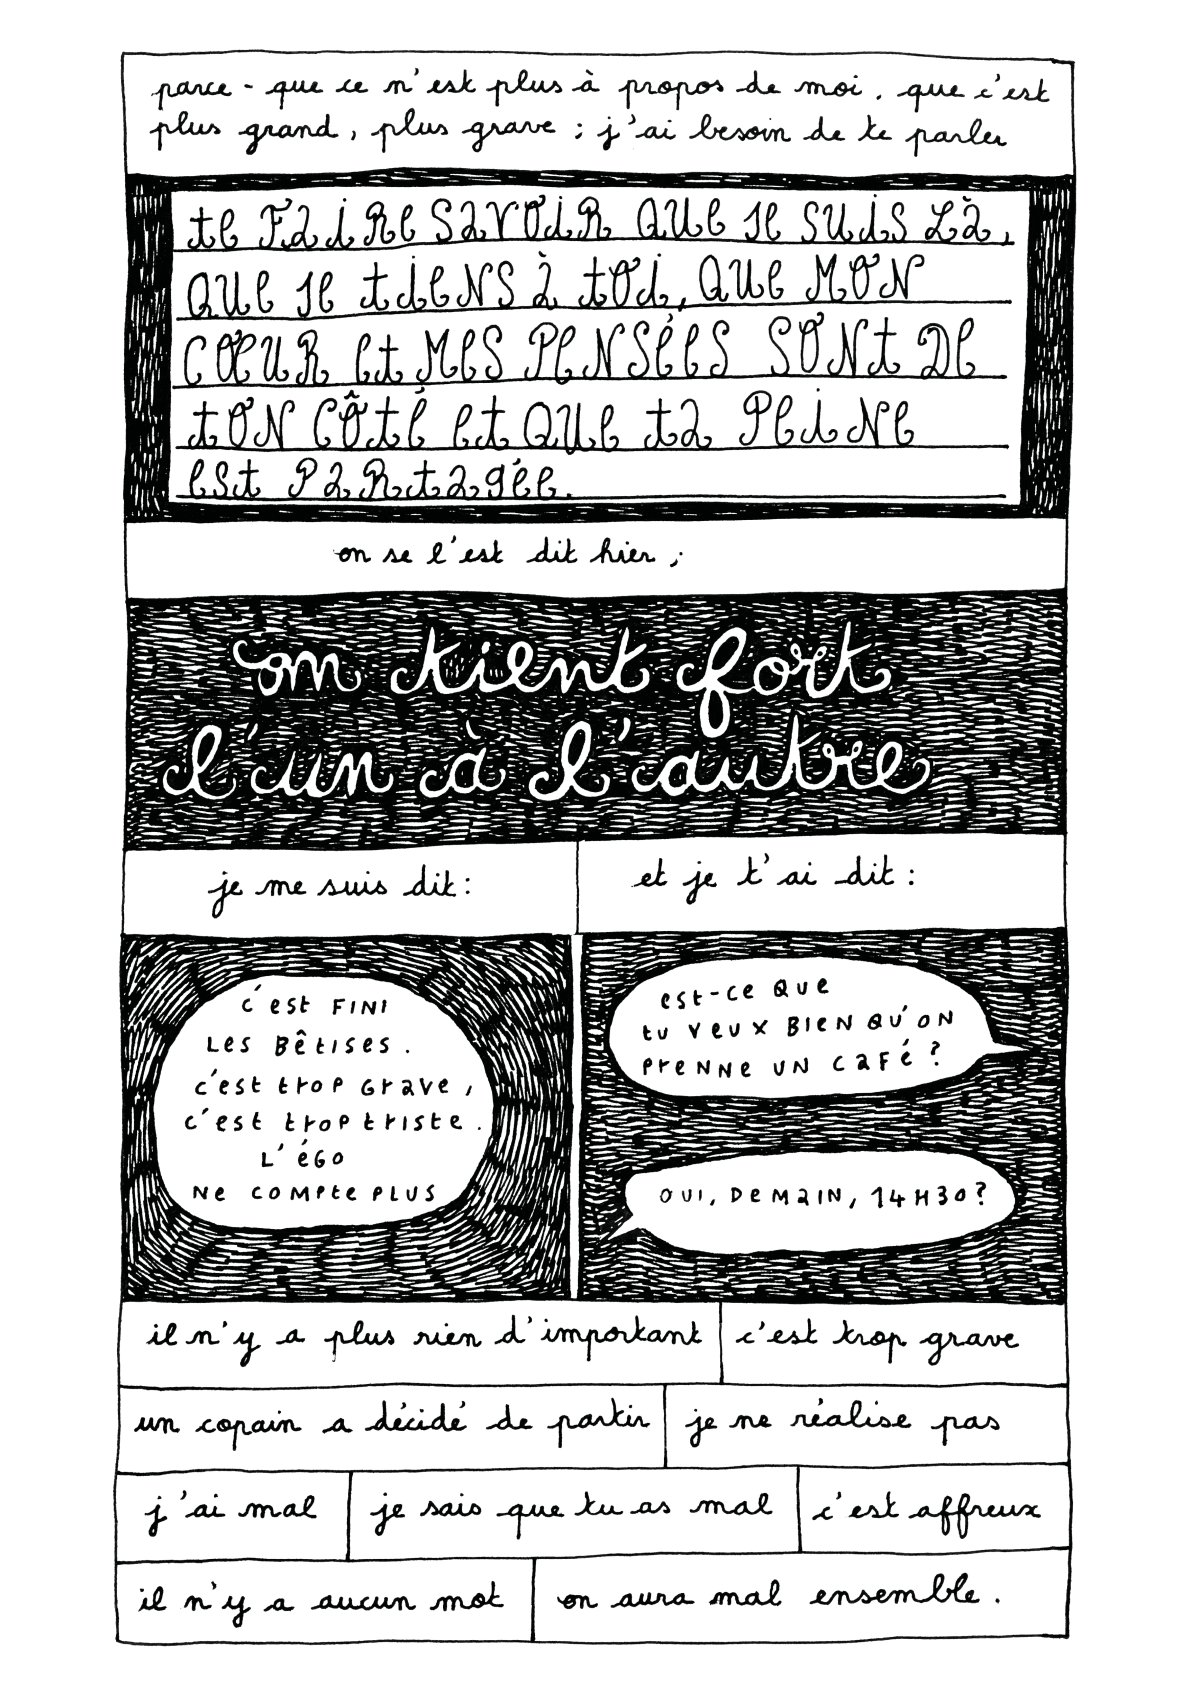 parce-que ce n'est plus à propos de moi. que c'est
plus grand, plus grave ; j'ai besoin de te parler
te FaiRe SavoiR Que Je suis Là,
Que Je tiens à toi, Que MON
CŒUR et MES PENSÉES SONT DE
TON CÔTÉ et QUE ta PEINE
est PaRtagée.
on se l'est dit hier ;
on tient fort
l'un à l'autre
je me suis dit :
c'est FINI
Les Bêtises.
c'est trop Grave,
c'est trop triste.
L'éGO
Ne compte plus
et je t'ai dit :
est-ce que
tu veux Bien Qu'on
prenne un café ?
OUI, Demain, 14H30 ?
il n'y a plus rien d'important
c'est trop grave
un copain a décidé de partir
je ne réalise pas
j'ai mal
je sais que tu as mal
c'est affreux
il n'y a aucun mot
on aura mal ensemble.